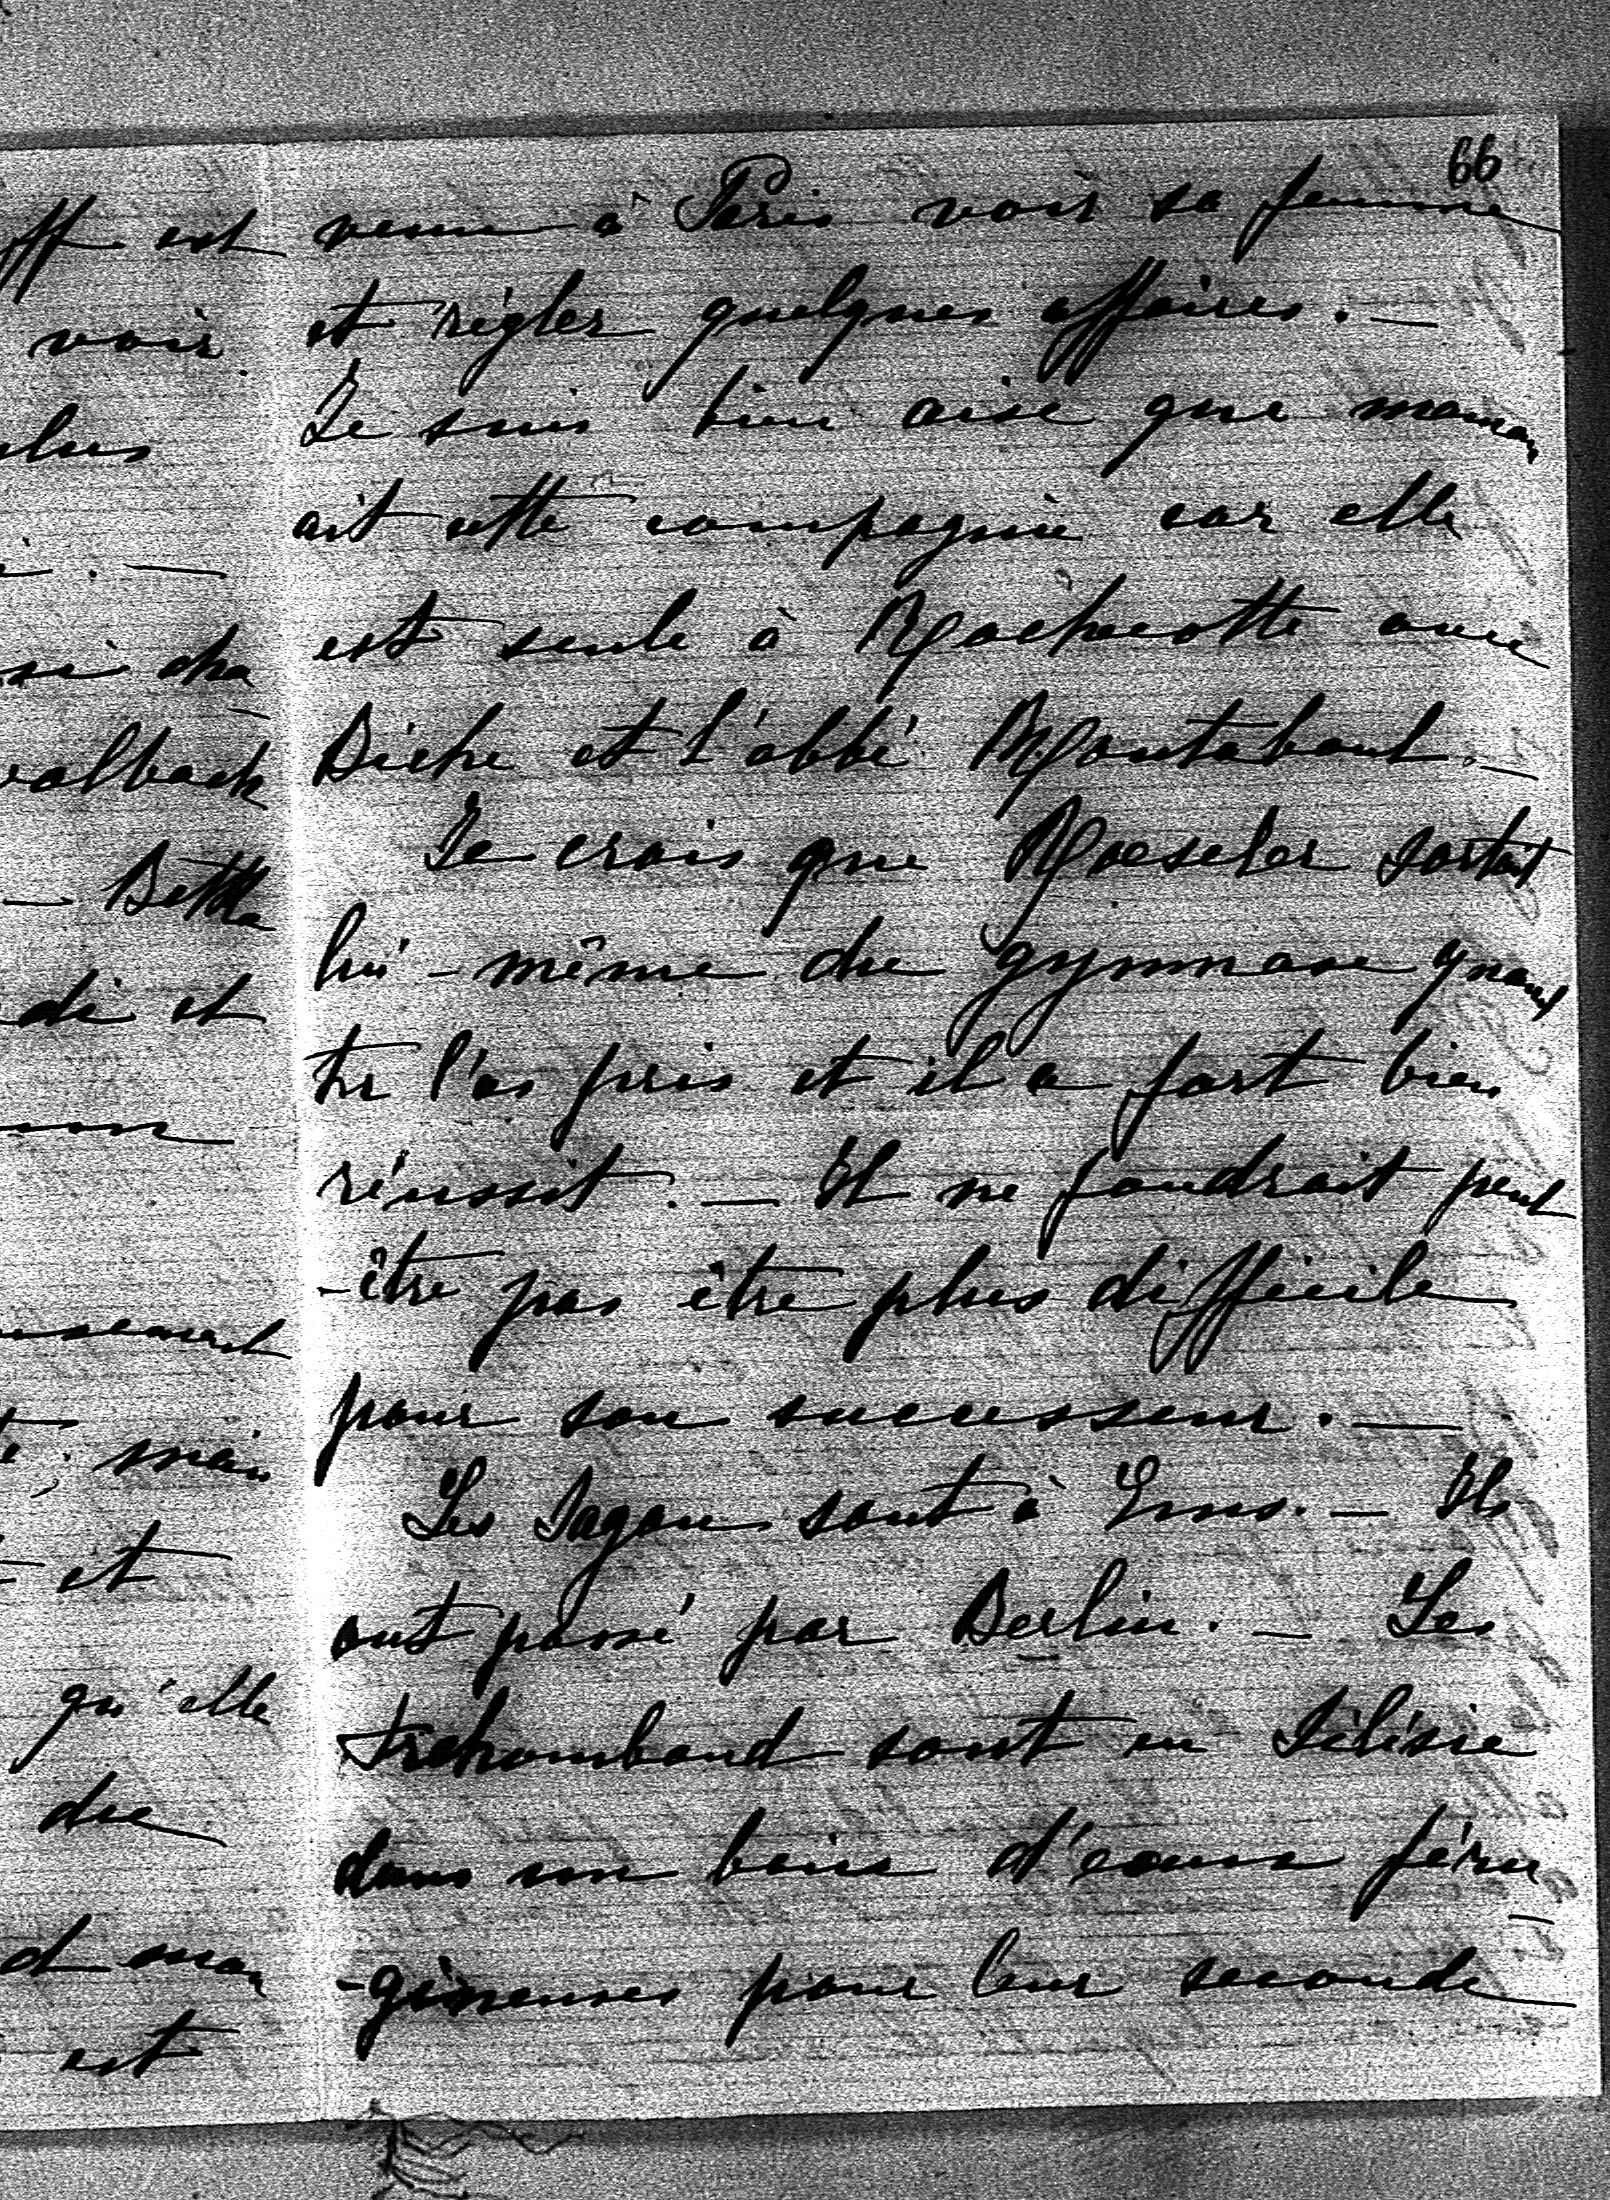 66
venu à Paris voir sa femme
et régler quelques affaires. —
Je suis bien aise que maman
ait cette compagnie car elle
est seule à Rochecotte avec
Biche et l'abbé Montabout. —
Je crois que Roeseler sortait
lui-même du gymnase quand
tu l'as pris et il a fort bien
réussit. — Il ne faudrait peut
-être pas être plus difficile
pour son successeur. —
Les Sagan sont à Ems. — Ils
ont passé par Berlin. — Les
Trahomband sont en Silésie
dans un bain d'eaux féru
-gineuses pour leur seconde
ff est
voir
plus
si cha
valbach
— Bettha
di et
usement
mais
et
qu'elle
du
d mon
est